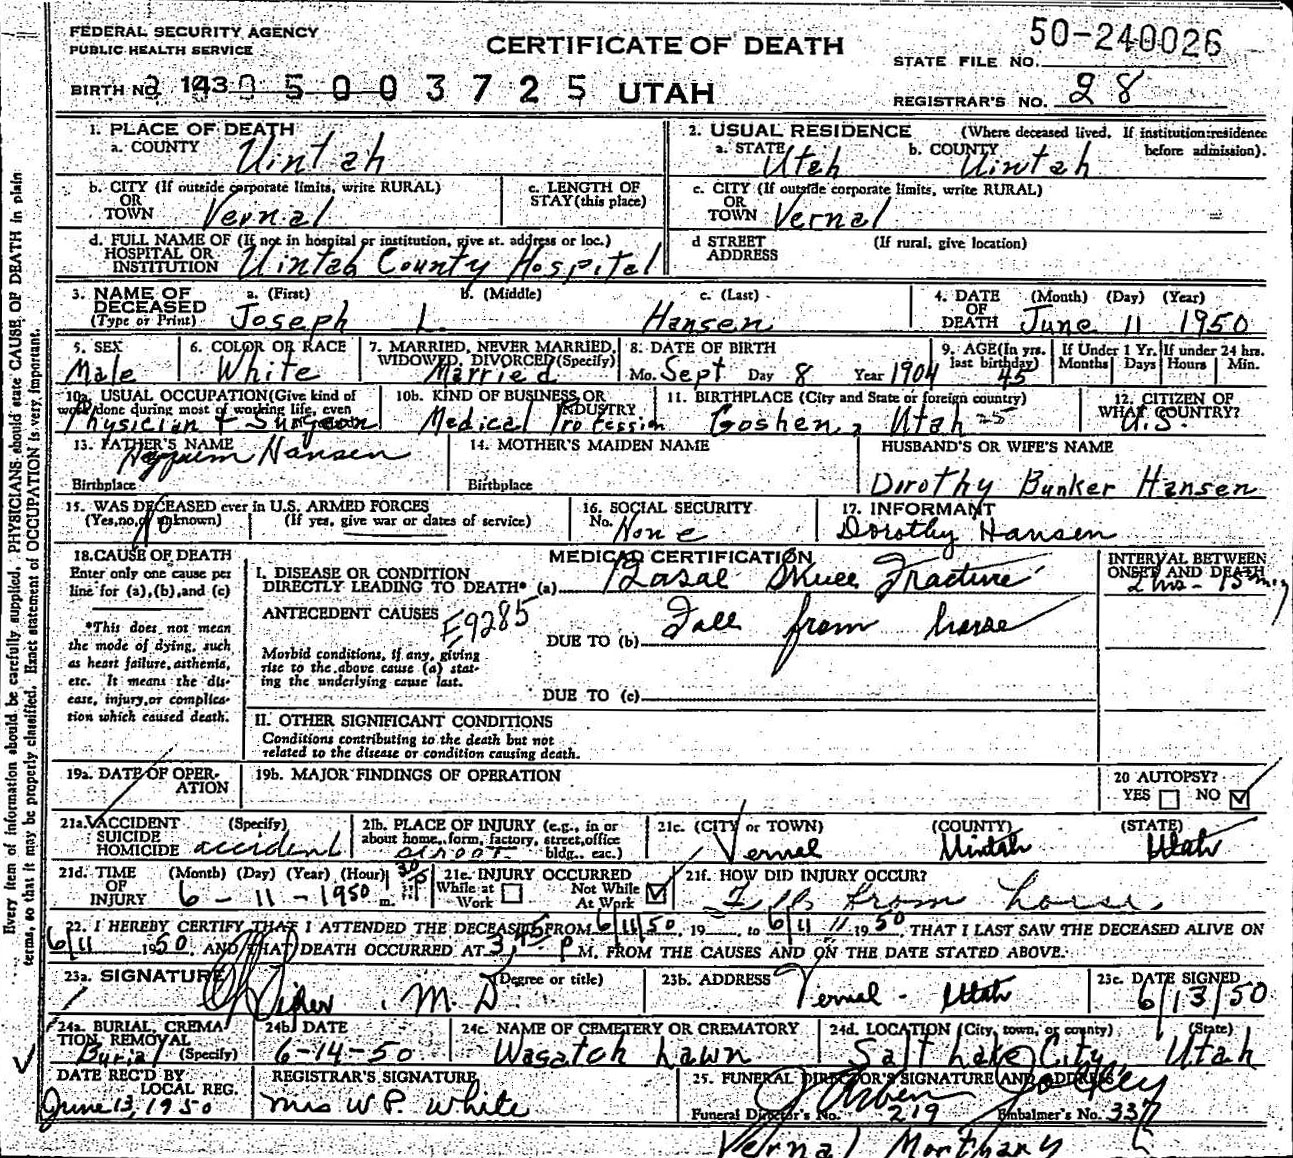 FEDERAL SECURITY AGENCY
PUBLIC HEALTH SERVICE
CERTIFICATE OF DEATH
50-240026
STATE FILE NO.
BIRTH NO. 143 0 5 0 0 3 7 2 5 UTAH
REGISTRAR'S NO. 28
Every item of information should be carefully supplied. PHYSICIANS should state CAUSE OF DEATH in plain
terms, so that it may be properly classified. Exact statement of OCCUPATION is very important.
1. PLACE OF DEATH
a. COUNTY Uintah
2. USUAL RESIDENCE (Where deceased lived. If institution: residence before admission).
a. STATE Utah b. COUNTY Uintah
b. CITY (If outside corporate limits, write RURAL)
OR
TOWN Vernal
c. LENGTH OF
STAY (this place)
c. CITY (If outside corporate limits, write RURAL)
OR
TOWN Vernal
d. FULL NAME OF (If not in hospital or institution, give st. address or loc.)
HOSPITAL OR
INSTITUTION Uintah County Hospital
d STREET (If rural, give location)
ADDRESS
3. NAME OF DECEASED a. (First) b. (Middle) c. (Last)
(Type or Print) Joseph L. Hansen
4. DATE OF DEATH (Month) (Day) (Year)
June 11 1950
5. SEX
Male
6. COLOR OR RACE
White
7. MARRIED, NEVER MARRIED,
WIDOWED, DIVORCED (Specify)
Married
8. DATE OF BIRTH
Mo. Sept Day 8 Year 1904
9. AGE (In yrs. last birthday)
45
If Under 1 Yr.
Months Days
If under 24 hrs.
Hours Min.
10a. USUAL OCCUPATION (Give kind of
work done during most of working life, even
Physician & Surgeon
10b. KIND OF BUSINESS OR
INDUSTRY
Medical Profession
11. BIRTHPLACE (City and State or foreign country)
Goshen, Utah 25
12. CITIZEN OF
WHAT COUNTRY?
U.S.
13. FATHER'S NAME
Hansen
Birthplace
14. MOTHER'S MAIDEN NAME
Birthplace
HUSBAND'S OR WIFE'S NAME
Dorothy Bunker Hansen
15. WAS DECEASED ever in U.S. ARMED FORCES
(Yes, no, or unknown) (If yes, give war or dates of service)
No
16. SOCIAL SECURITY
No. None
17. INFORMANT
Dorothy Hansen
18. CAUSE OF DEATH
Enter only one cause per
line for (a), (b), and (c)
*This does not mean
the mode of dying, such
as heart failure, asthenia,
etc. It means the dis-
ease, injury, or complica-
tion which caused death.
MEDICAL CERTIFICATION
I. DISEASE OR CONDITION
DIRECTLY LEADING TO DEATH* (a) Basal Skull Fracture
ANTECEDENT CAUSES E9285
DUE TO (b) Fall from horse
Morbid conditions, if any, giving
rise to the above cause (a) stat-
ing the underlying cause last.
DUE TO (c)
II. OTHER SIGNIFICANT CONDITIONS
Conditions contributing to the death but not
related to the disease or condition causing death.
INTERVAL BETWEEN
ONSET AND DEATH
2 hrs - 15 min
19a. DATE OF OPER-
ATION
19b. MAJOR FINDINGS OF OPERATION
20 AUTOPSY?
YES NO
21a. ACCIDENT (Specify)
SUICIDE
HOMICIDE accident
21b. PLACE OF INJURY (e.g., in or
about home, form, factory, street, office
bldg., eac.)
street
21c. (CITY or TOWN) (COUNTY) (STATE)
Vernal Uintah Utah
21d. TIME OF INJURY (Month) (Day) (Year) (Hour)
6 - 11 - 1950 m.
21e. INJURY OCCURRED
While at Work Not While At Work
21f. HOW DID INJURY OCCUR?
Fell from horse
22. I HEREBY CERTIFY THAT I ATTENDED THE DECEASED FROM 6/11/50, 19 , to 6/11 1950, THAT I LAST SAW THE DECEASED ALIVE ON
6/11 1950, AND THAT DEATH OCCURRED AT 3:45 P M. FROM THE CAUSES AND ON THE DATE STATED ABOVE.
23a. SIGNATURE (Degree or title)
M. D.
23b. ADDRESS
Vernal - Utah
23c. DATE SIGNED
6/13/50
24a. BURIAL, CREMA
TION, REMOVAL
Burial (Specify)
24b. DATE
6-14-50
24c. NAME OF CEMETERY OR CREMATORY
Wasatch Lawn
24d. LOCATION (City, town, or county) (State)
Salt Lake City Utah
DATE REC'D BY
LOCAL REG.
June 13, 1950
REGISTRAR'S SIGNATURE
Mrs W P. White
25. FUNERAL DIRECTOR'S SIGNATURE AND ADDRESS
Funeral Director's No. 219 Embalmer's No. 337
Vernal Mortuary